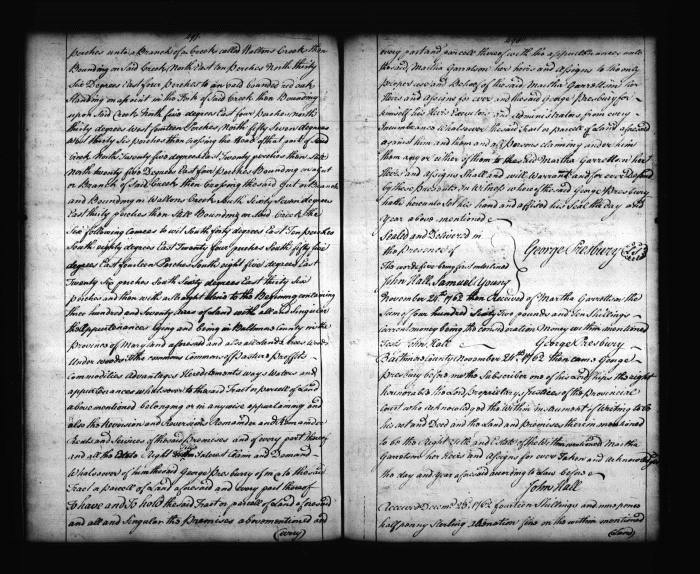 perches unto a Branch of a Creek called Waltons Creek then
Bounding on Said Creek North East ten perches North thirty
Six Degrees East four perches to an old bounded red oak
Standing on a point in the Fork of Said Creek then Bounding
upon Said Creek North five degrees East four perches North
thirty degrees West fourteen Perches North fifty Seven degrees
West thirty Six perches then Crossing the Head of that part of Said
Creek North Twenty five degrees East Twenty perches then Still
North twenty five Degrees East four perches Bounding on a Gut
or Branch of Said Creek then Crossing the said Gut or Branch
and Bounding on Waltons Creek South Sixty Seven degrees
East thirty perches then Still Bounding on Said Creek the
Six following courses to wit South forty degrees East Ten perches
South eighty degrees East Twenty four perches South fifty five
degrees East fourteen Perches South eight five degrees East
Twenty Six perches South Sixty degrees East thirty Six
perches and then with a Straight line to the Beginning containing
three hundred and Seventy Acres of land with all and Singular
the appurtenances lying and being in Baltimore County in the
Province of Maryland aforesaid and also all woods
Under woods the commons Common of Pasture profits
Commodities Advantages Hereditaments ways Waters and
appurtenances whatsoever to the said Tract or parcell of Land
above mentioned belonging or in any wise appertaining and
also the Reversion and Reversions Remainder and Remainders
Rents and Services of the said Premises and of every part thereof
and all the Estate Right Interest Claim and Demand
Whatsoever of him the said George Presbury of in or to the said
Tract or parcell of Land aforesaid and every part thereof
To have and To hold the said Tract or parcell of Land aforesaid
and all and Singular the Premises above mentioned and
(every)
every part and parcell thereof with the appurtenances unto
the said Martha Garretson her heirs and assigns to the only
proper use and Behoof of the said Martha Garretson her
Heirs and assigns for ever and the said George Presbury for
himself his Heirs Executors and Administrators from every
Incumbrance Whatsoever the said Tract or parcell of Land aforesaid
against him and them and all persons claiming under him
them any or either of them to the Said Martha Garretson her
Heirs and assigns Shall and will Warrant and for ever Defend
by these Presents in Witness whereof the said George Presbury
hath hereunto Set his hand and affixed his Seal the day and
Year above mentioned
Sealed and Delivered in
the presence of
George Presbury
The words five being first interlined
John Hall, Samuel Young
November 24th 1762 then Received of Martha Garretson the
Sum of four hundred Sixty Two pounds and ten Shillings
current money being the consideration money within mentioned
Teste John Hall George Presbury
Baltimore County November 24th 1762 then came George
Presbury before me the Subscriber one of his Lordships the right
honorable the Lord Proprietarys Justices of the Provincial
Court who acknowledged the within instrument of Writing to be
his act and Deed and the Land and Premises therein mentioned
to be the Right Title and Estate of the within mentioned Martha
Garretson her Heirs and assigns for ever Taken and acknowledged
the day and Year aforesaid according to Law before
John Hall
Received Decem 25th 1762 fourteen Shillings and nine pence
half penny Sterling alienation fine on the within mentioned
(Land)